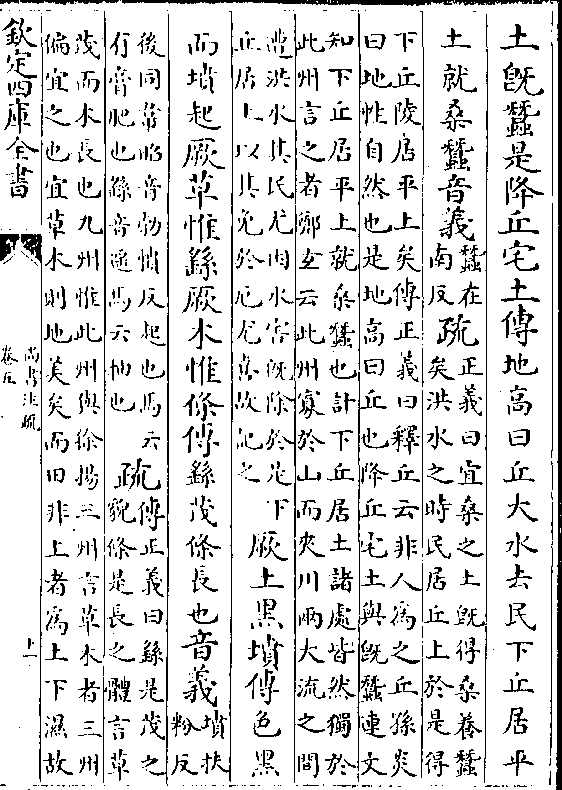 土既蠶是降丘宅土傳地高曰丘大水去民下丘居平
土就桑蠶音義
蠶在
南反
疏
正義曰宜桑之土既得桑養蠶
矣洪水之時民居丘上於是得
下丘陵居平土矣傳正義曰釋丘云非人為之丘孫炎
曰地性自然也是地高曰丘也降丘宅土與既蠶連文
知下丘居平土就桑蠶也計下丘居土諸處皆然獨於
此州言之者鄭玄云此州寡於山而夾川兩大流之間
遭洪水其民尤困水害既除於是下
丘居土以其免於厄尤喜故記之
厥土黑墳傳色黑
而墳起厥草惟繇厥木惟條傳繇茂條長也音義
墳扶
粉反
後同韋昭音勃憤反起也馬云
有膏肥也繇音遙馬云抽也
疏
傳正義曰繇是茂之
貌條是長之體言草
茂而木長也九州惟此州與徐揚三州言草木者三州
偏宜之也宜草木則地美矣而田非上者為土下濕故
欽定四庫全書
尚書注疏
卷五
十一